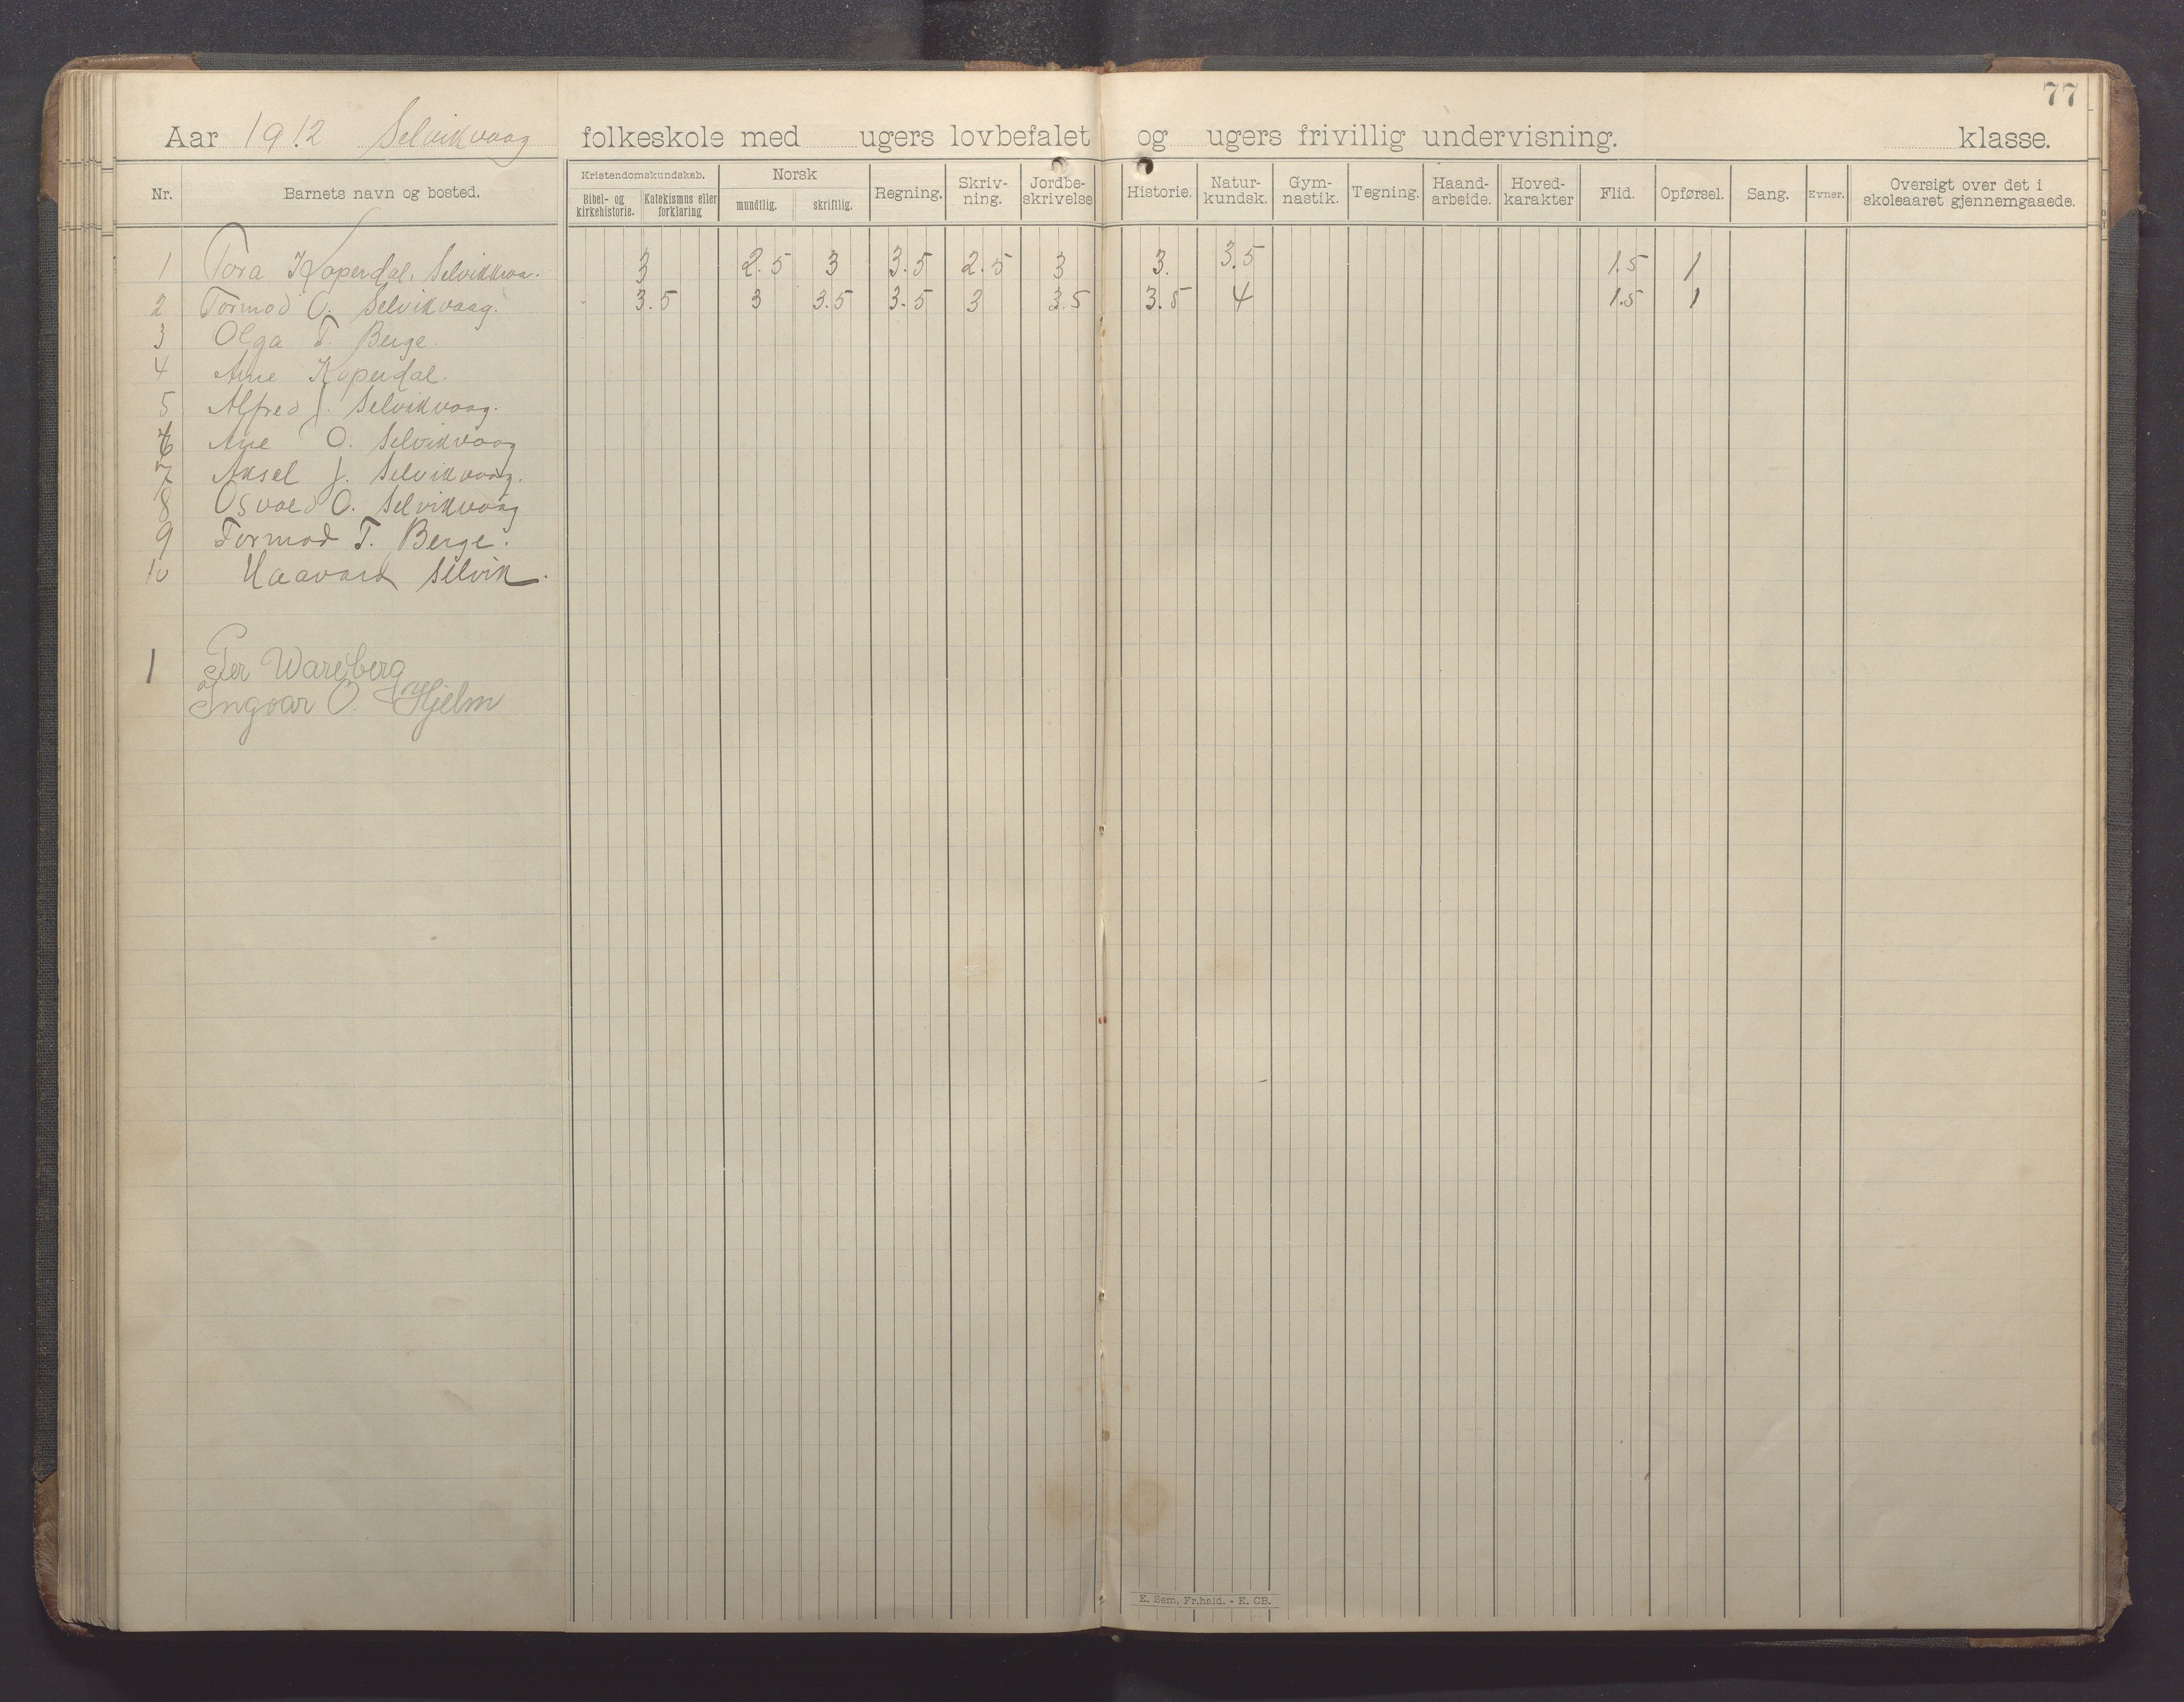 77
Aar 1912 Selvikvaag folkeskole med ugers lovbefalet og ugers frivillig undervisning. klasse.
Nr. Barnets navn og bosted. Kristendomskundskab. Bibel- og kirkehistorie. Katekismus eller forklaring Norsk mundtlig. skriftlig. Regning. Skriv-ning. Jordbe-skrivelse Historie. Natur-kundsk. Gym-nastik. Tegning. Haand-arbeide. Hoved-karakter Flid. Opførsel. Sang. Evner. Oversigt over det i skoleaaret gjennemgaaede.
1 Tora Koperdal. Selvikvaa. 3 2.5 3 3.5 2.5 3 3. 3.5 1.5 1
2 Tormod O. Selvikvaag. 3.5 3 3.5 3.5 3 3.5 3.5 4 1.5 1
3 Olga T. Berge.
4 Arne Koperdal.
5 Alfred J. Selvikvaag.
6 Ane O. Selvikvaag
7 Aksel J. Selvikvaag.
8 Osvald O. Selvikvaag
9 Tormod T. Berge.
10 Haavard Selvik.
1 Per Wareberg
Ingvar O. Hjelm
E. Sem, Fr.hald. - E. CB.